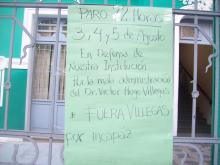 PARO 72 Horas
3, 4 y 5 de Agosto
En Defensa de
Nuestra Institución
Por la mala administración
del Dr. Victor Hugo Villegas
* FUERA VILLEGAS
por incapaz